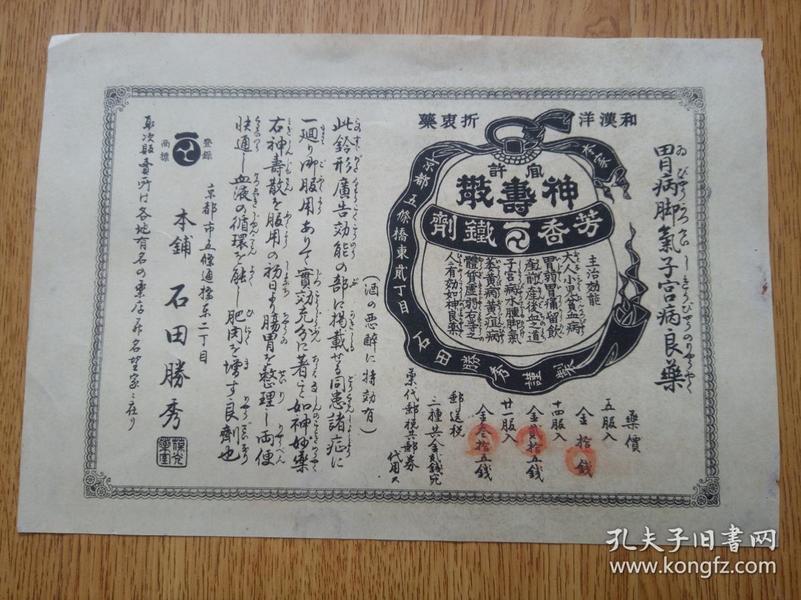 胃病脚氣子宮病良藥
和漢洋折衷藥
本家
京都五條橋東貳丁目
石田勝秀謹製
官許
神壽散
芳香鐵劑
主治効能
大人小児貧血病
胃弱胃痛留飲
産前産後血之道
子宮病水腫脚氣
萎黄病黄疸病
體質虚弱右等之
人々有効如神良薬
藥價
五服入
金拾錢
十四服入
金貳拾五錢
廿一服入
金参拾五錢
郵送税
三種共金貳錢宛
薬代郵税共郵券
代用ス
(酒の悪醉に特効有)
此鈴形廣告効能の部に掲載せる同患諸症に
一廻り御服用ありて實効充分に著きこと如神妙薬
右神壽散を服用の初日より腸胃を整理し両便
快通し血液の循環を能し肥肉を増す良劑也
登録
商標
京都市五條通橋東二丁目
本舗 石田勝秀
取次販賣所は各地有名の薬店并名望家に在り
孔夫子旧书网
www.kongfz.com